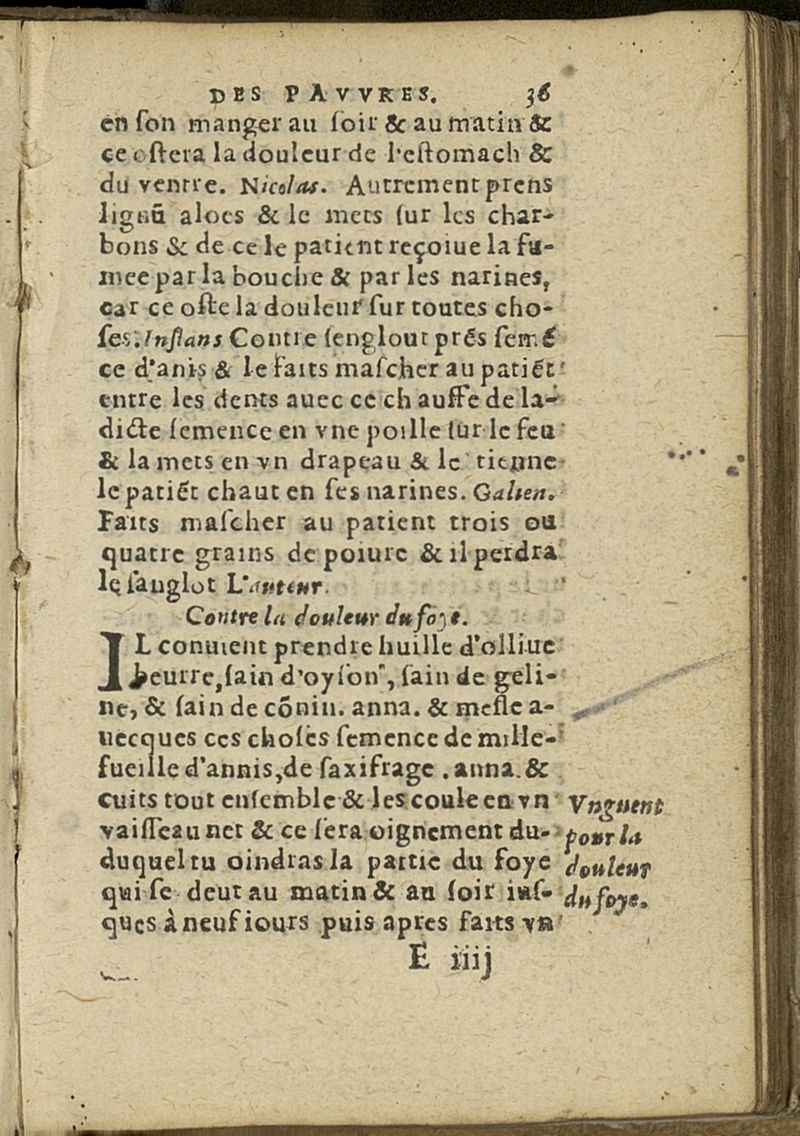 DES PAVVRES. 36
en ſon manger au ſoir & au matin &
ce oſtera la douleur de l'eſtomach &
du ventre. Nicolas. Autrement prens
lignū aloes & le mets ſur les char-
bons & de ce le patient reçoiue la fu-
mee par la bouche & par les narines,
car ce oſte la douleur ſur toutes cho-
ſes. Inſtans Contre ſenglout prés ſemé
ce d'anis & le faits maſcher au patiét
entre les dents auec ce chauffe de la-
dicte ſemence en vne poille ſur le feu
& la mets en vn drapeau & le tienne
le patiét chaut en ſes narines. Galien.
Faits maſcher au patient trois ou
quatre grains de poiure & il perdra
le ſauglot L'auteur.
Contre la douleur du foye.
IL conuient prendre huille d'olliue
beurre, ſain d'oyſon, ſain de geli-
ne, & ſain de cōnin. anna. & meſle a-
uecques ces choſes ſemence de mille-
fueille d'annis, de ſaxifrage . anna. &
cuits tout enſemble & les coule en vn
vaiſſeau net & ce ſera oignement du-
duquel tu oindras la partie du foye
qui ſe deut au matin & au ſoir iuſ-
ques à neuf iours puis apres faits vn
Vnguent
pour la
douleur
du foye.
E iiij